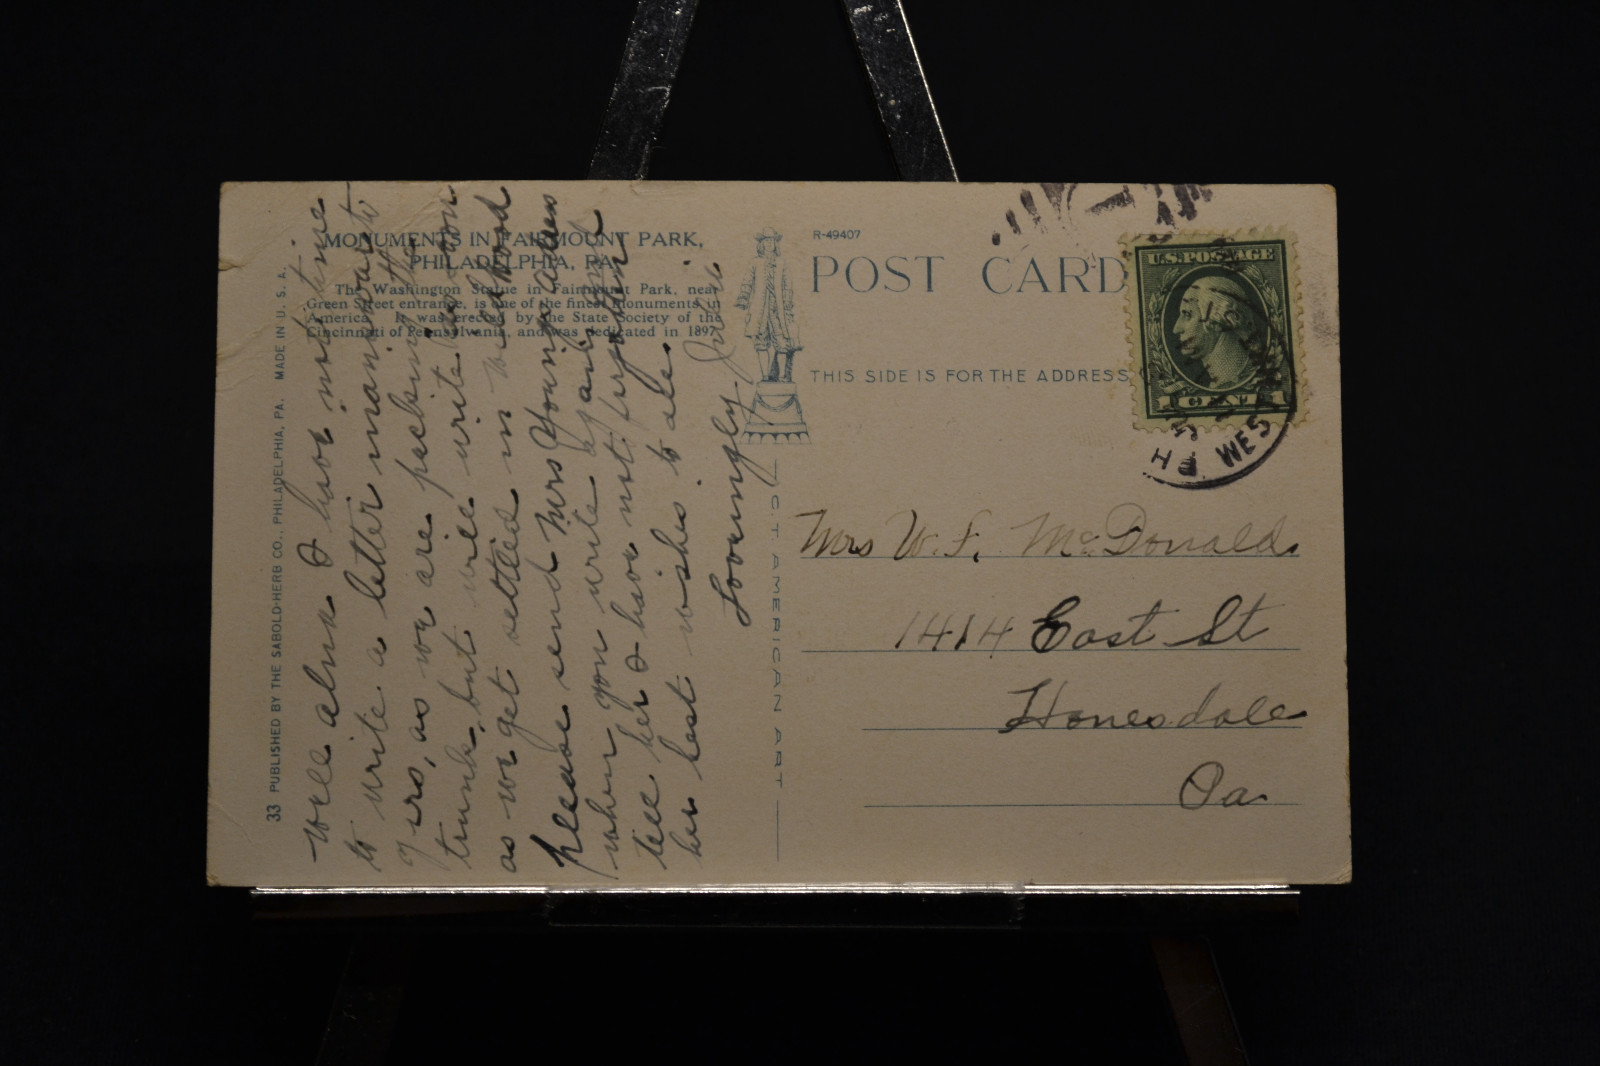 MONUMENTS IN FAIRMOUNT PARK,
PHILADELPHIA, PA.
The Washington Statue in Fairmount Park, near
Green Street entrance, is one of the finest Monuments in
America. It was erected by the State Society of the
Cincinnati of Pennsylvania, and was dedicated in 1897.
33 PUBLISHED BY THE SABOLD-HERB CO., PHILADELPHIA, PA. MADE IN U. S. A.
Well alma I have not time
to write a letter
as we are packing the
trunk, but will write as soon
as we get settled in
please send Mrs Youngs
when you write again and
tell her I have not forgotten
her best wishes to all.
Lovingly
C.T. AMERICAN ART
R-49407
POST CARD
THIS SIDE IS FOR THE ADDRESS
U.S. POSTAGE
1 CENT 1
WES
Mrs W. F. McDonald.
1414 East St
Honesdale
Pa